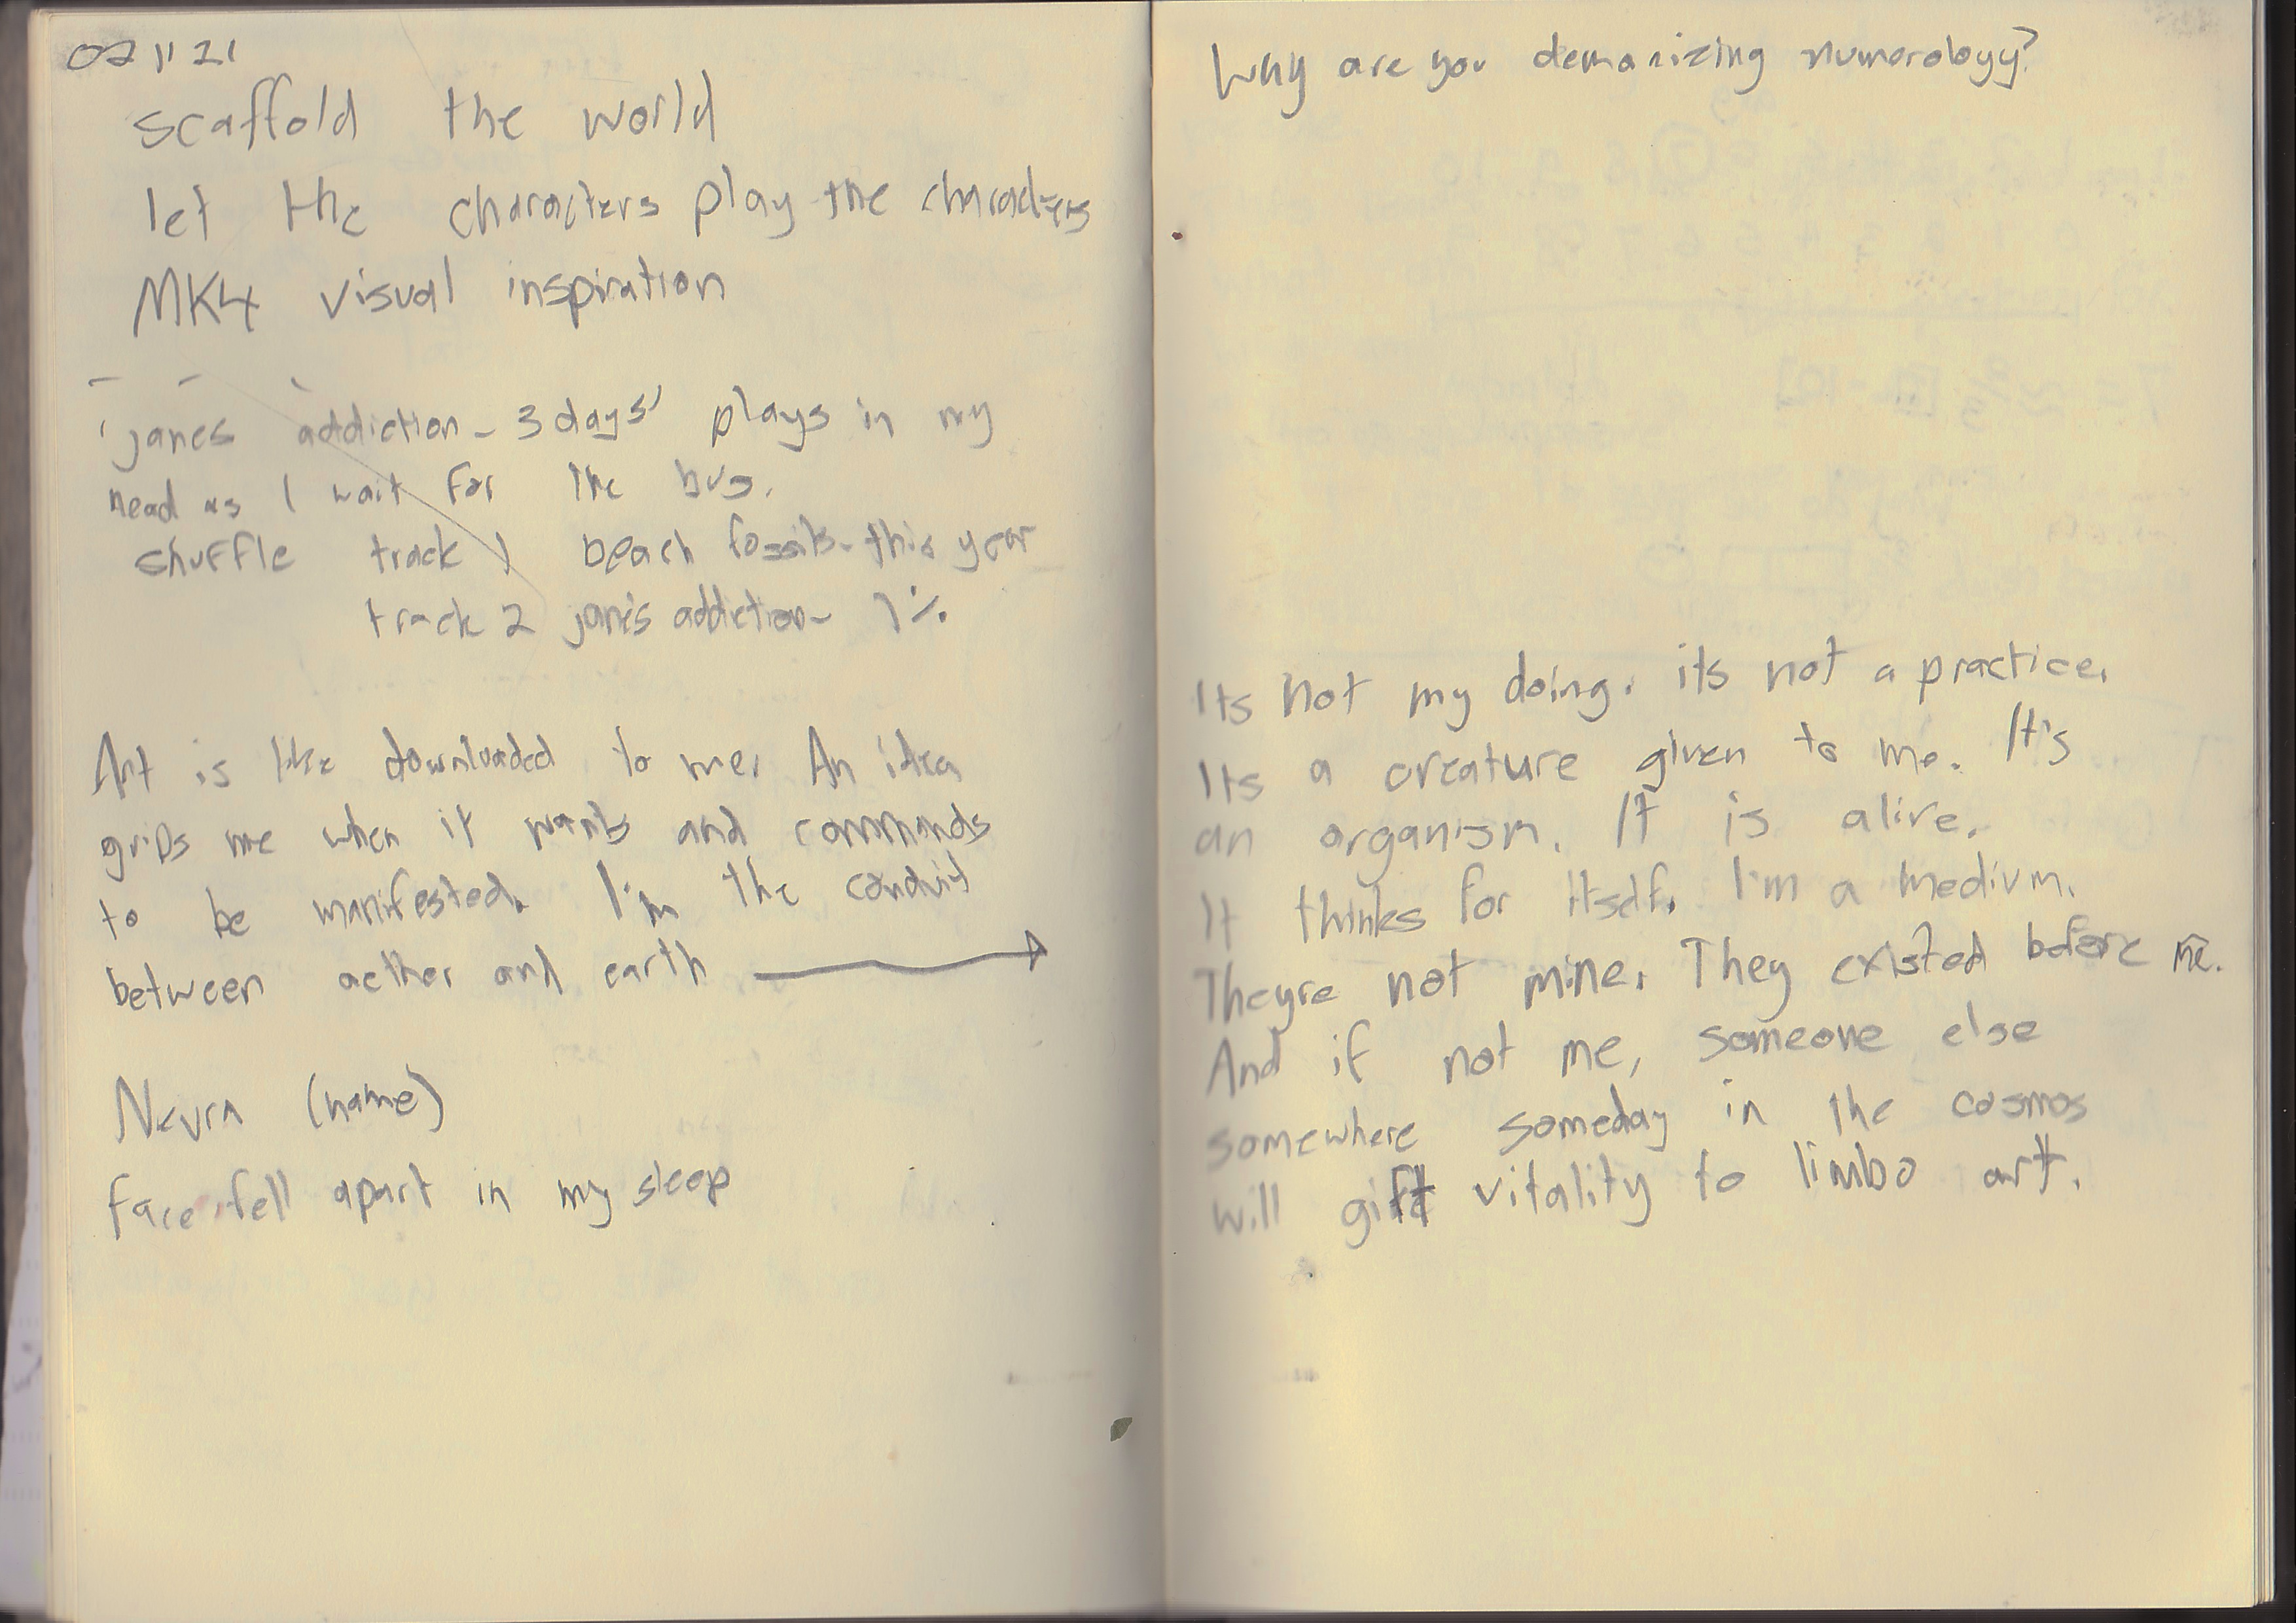 02 11 21
scaffold the world
let the characters play the characters
MK4 visual inspiration
'janes addiction - 3 days' plays in my
head as I wait for the bus.
shuffle track 1 beach fossils - this year
track 2 jane's addiction - 1%
Art is like downloaded to me. An idea
grips me when it wants and commands
to be manifested. I'm the conduit
between aether and earth
(name)
face fell apart in my sleep
Why are you demonizing numorology?
Its not my doing. its not a practice.
Its a creature given to me. It's
an organism. It is alive.
It thinks for itself. I'm a medium.
Theyre not mine. They existed before me.
And if not me, someone else
somewhere someday in the cosmos
will gift vitality to limbo art.